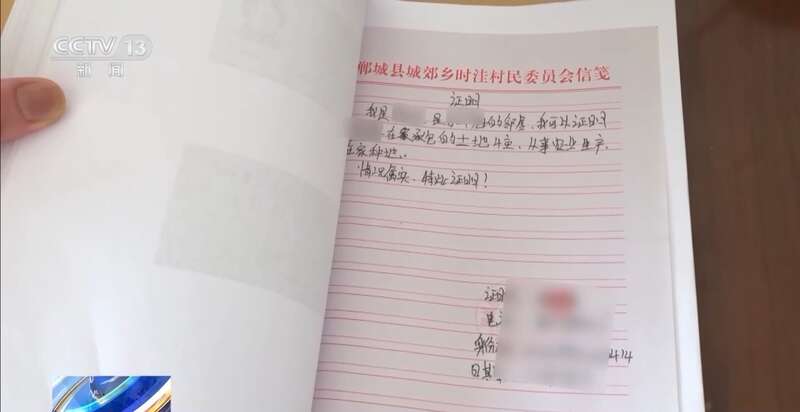 CCTV 13
新闻
郸城县城郊乡时洼村民委员会信笺
证明
我是 是 的邻居，我可以证明
在家承包的土地4亩，从事农业生产，
在家种地。
情况属实，特此证明！
证明
电
身份 414
日期